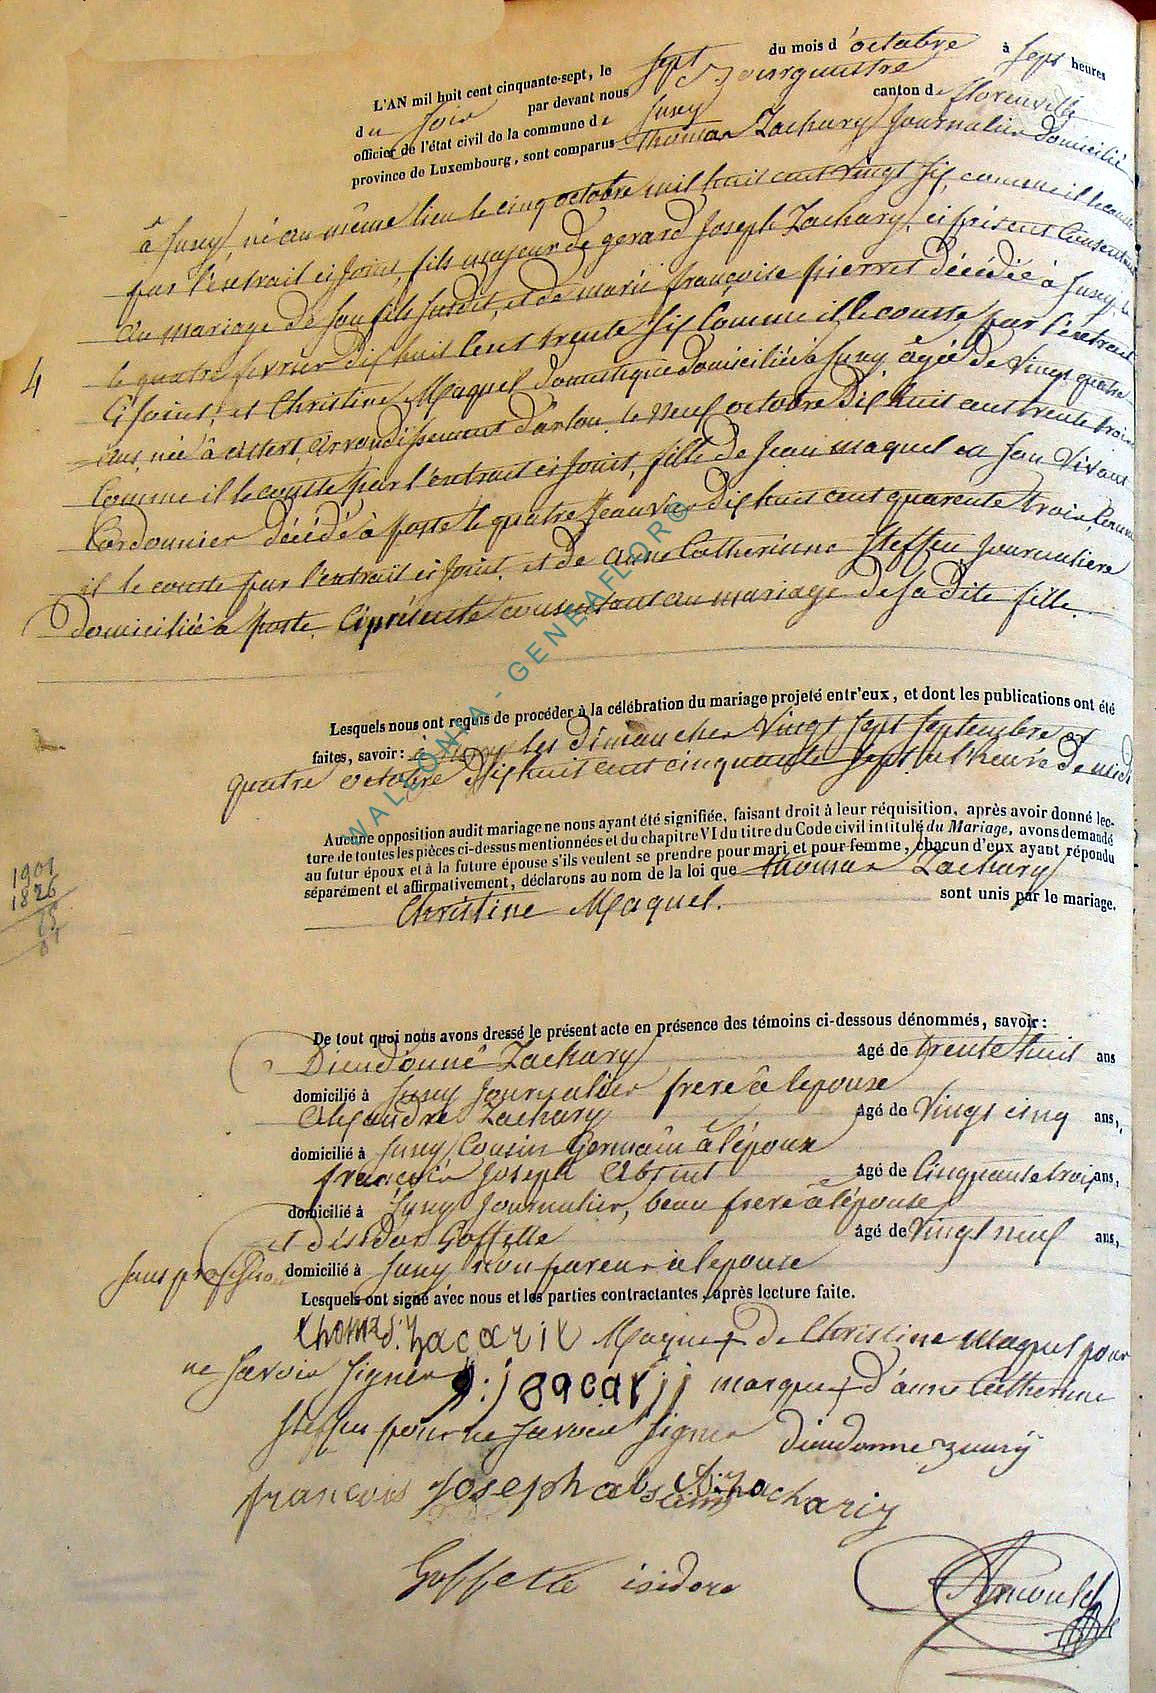 L'AN mil huit cent cinquante-sept, le sept du mois d'octobre à sept heures
du soir par devant nous Bourgmestre
officier de l'état civil de la commune de Jusey canton de florenville
province de Luxembourg, sont comparus thomas Zachary Journalier domicilié
à Jusey, né au même lieu le cinq octobre mil huit cent vingt six, comme il le conste
par l'extrait ci Joint, fils majeur de gerard Joseph Zachary, ci présent Consentant
au mariage de son fils susdit, et de marie françoise pierret décédée à Jusey
le quatre fevrier dix huit Cent trente six Comme il le conste par l'extrait
Ci Joint; et Christine Maquel domestique domiciliée à Jusey âgée de Vingt quatre
ans, née à attert, arrondissement d'arlon le neuf octobre dix huit cent trente trois
Comme il le conste par l'extrait ci Joint, fille de Jean maquel en son Vivant
Cordonnier décédé à poste le quatre Jeanvier dix huit cent quarente trois, Comme
il le conste par l'extrait ci Joint, et de anne Catherinne Steffen Journaliere
domiciliée à poste, Ci présente consentant au mariage de sa dite fille.
4
Lesquels nous ont requis de procéder à la célébration du mariage projeté entr'eux, et dont les publications ont été
faites, savoir: à Jusey les dimanches Vingt Sept Septembre et
quatre octobre dix huit cent cinquante Sept a l'heure de midi
Aucune opposition audit mariage ne nous ayant été signifiée, faisant droit à leur réquisition, après avoir donné lec-
ture de toutes les pièces ci-dessus mentionnées et du chapitre VI du titre du Code civil intitulé du Mariage, avons demandé
au futur époux et à la future épouse s'ils veulent se prendre pour mari et pour femme, chacun d'eux ayant répondu
séparément et affirmativement, déclarons au nom de la loi que thomas Zachary
Christine Maquel. sont unis par le mariage.
1901
1826
De tout quoi nous avons dressé le présent acte en présence des témoins ci-dessous dénommés, savoir:
Dieudonné Zachary âgé de trente huit ans
domicilié à Jusey Journalier frere à lepoux
Alexandre Zachary âgé de Vingt cinq ans,
domicilié à Jusey Cousin Germain à l'époux
françois Joseph Absint âgé de Cinquante trois ans,
domicilié à Jusey Journalier, beau frere à l'épouse
et d'isidor Goffette âgé de Vingt neuf ans,
sans profession domicilié à Jusey non parent à lepouse
Lesquels ont signé avec nous et les parties contractantes, après lecture faite.
thomas. Zacarie Marque + de Christine maquel pour
ne savoir signer g:j zacarij marque + d'anne Catherine
Steffen pour ne savoir signer dieudonne
francois Joseph absint A: Zachariy
Goffette isidore
WALLONIA - GENEAFLOR©